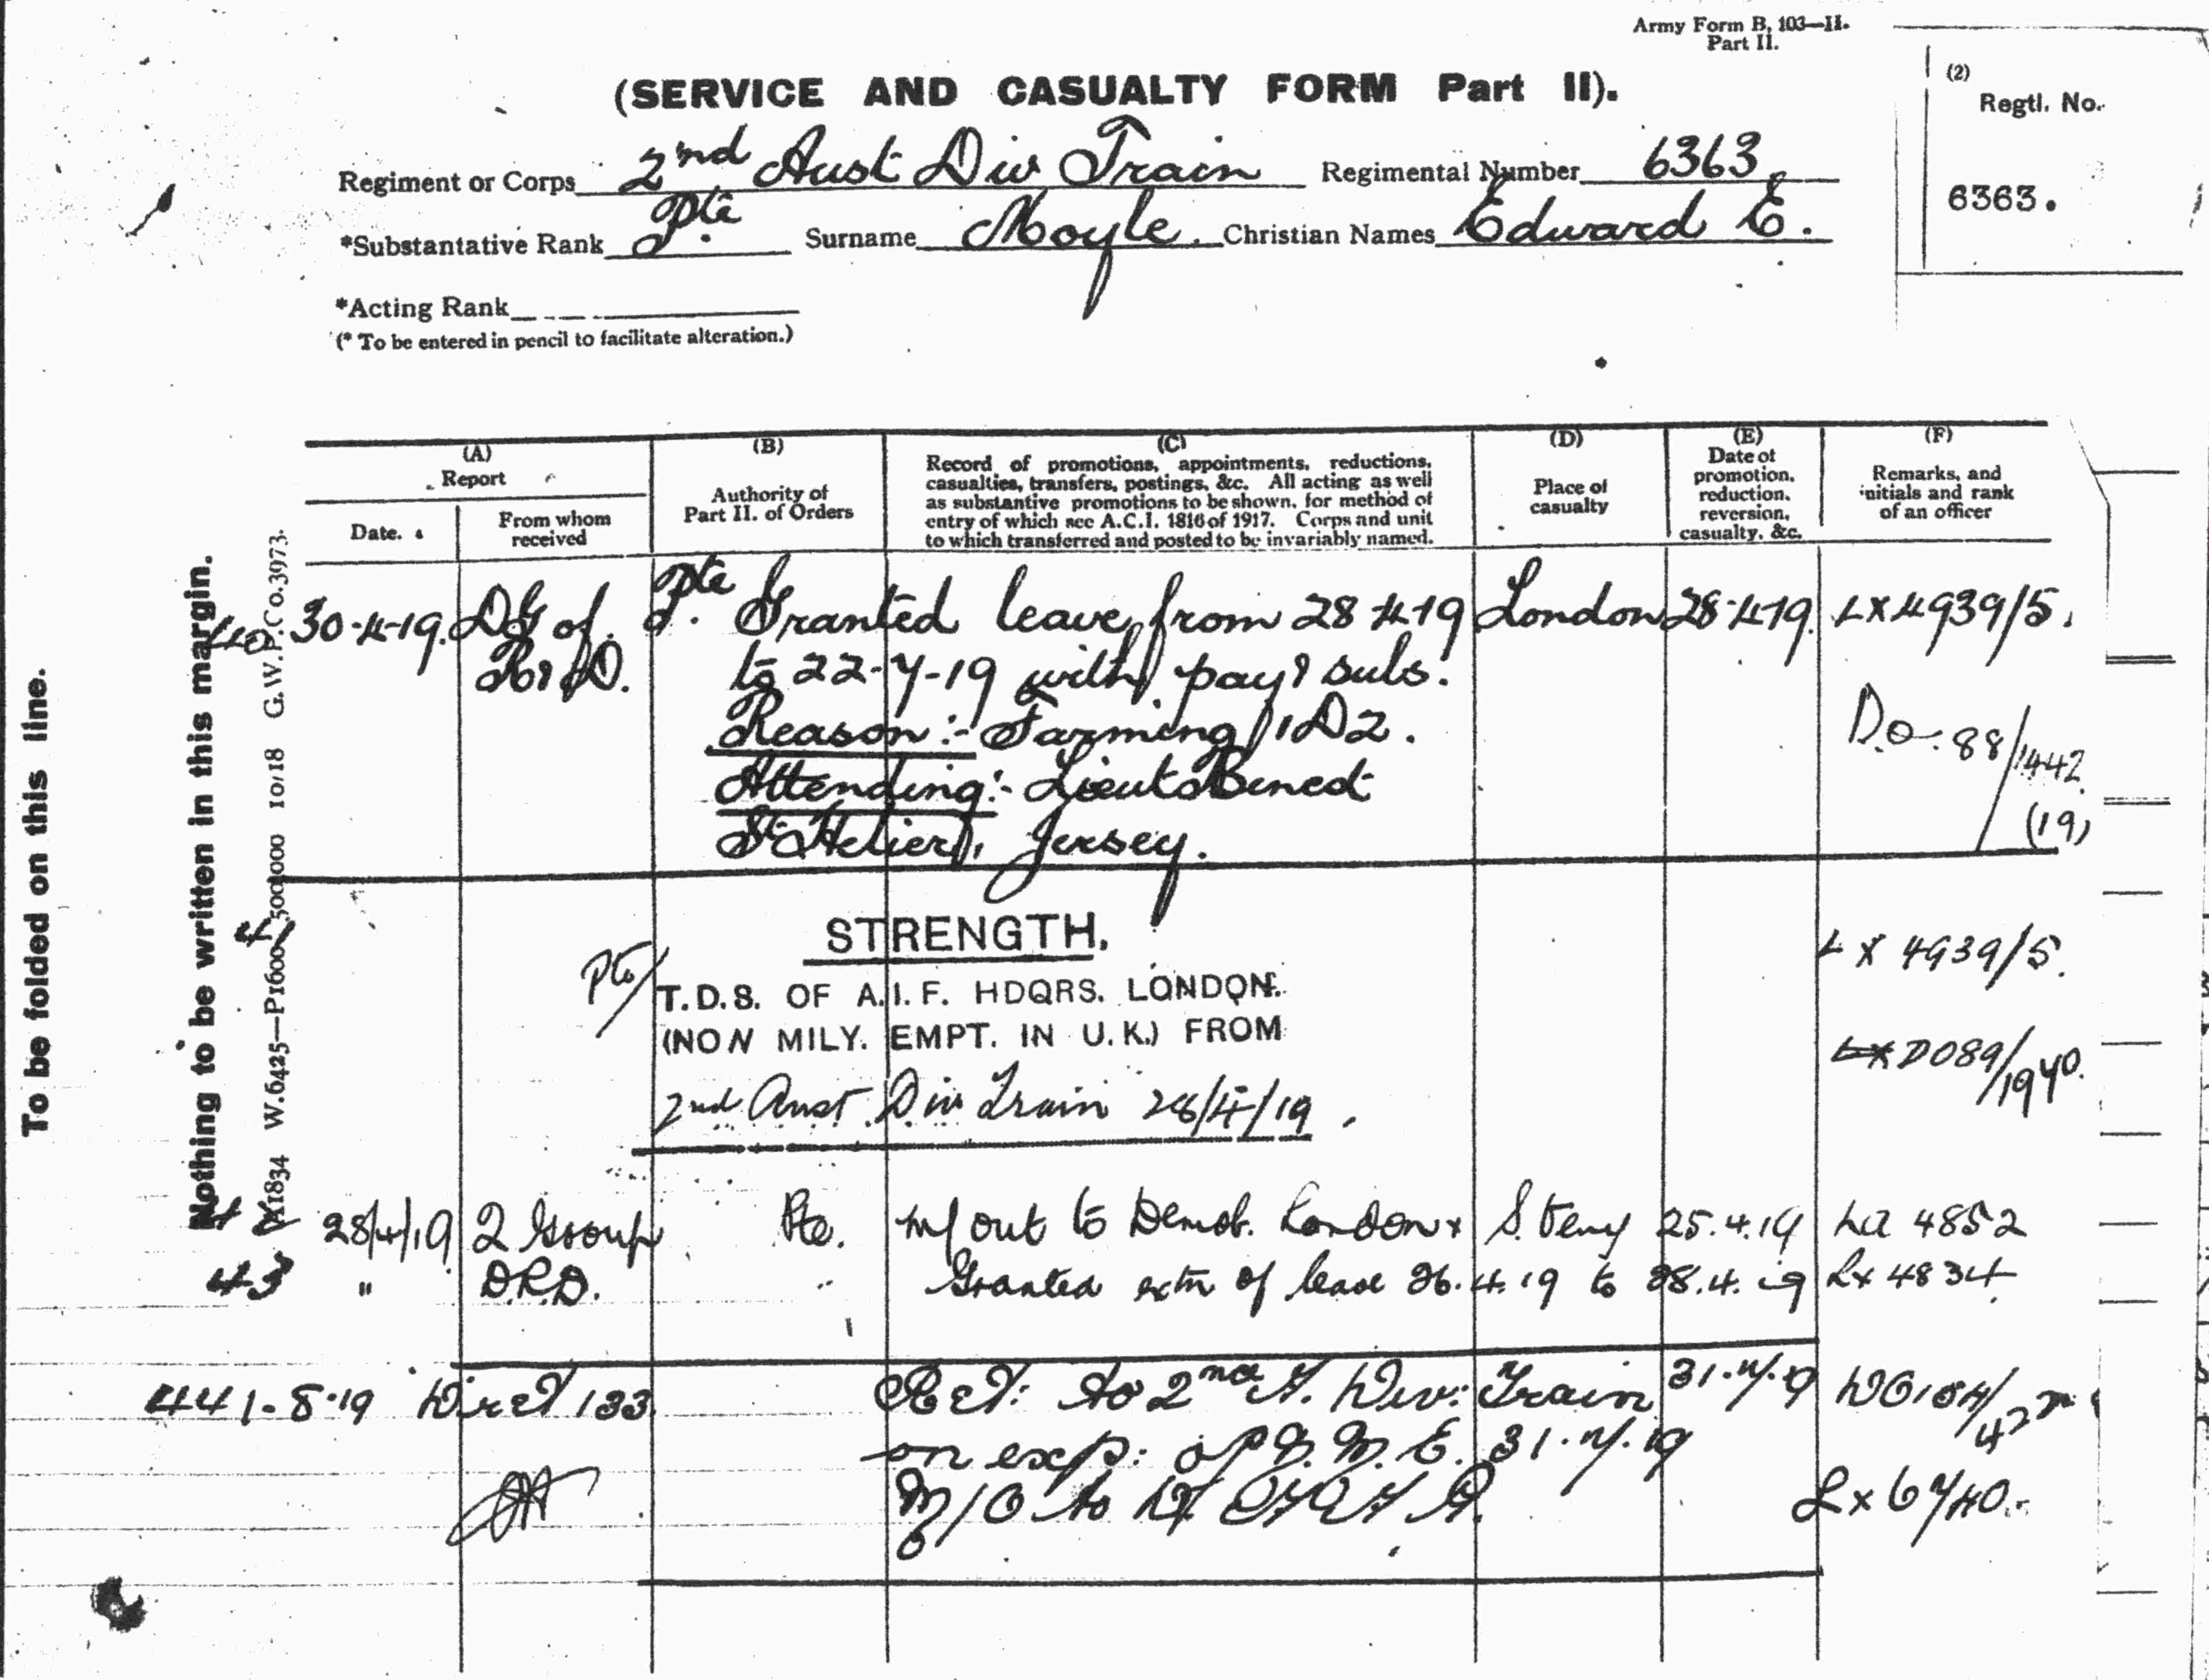 Army Form B, 103—II.
Part II.
(SERVICE AND CASUALTY FORM Part II).
(2)
Regtl. No.
6363.
Regiment or Corps 2nd Aust Div Train Regimental Number 6363
*Substantative Rank Pte Surname Moyle. Christian Names Edward E.
*Acting Rank
(* To be entered in pencil to facilitate alteration.)
To be folded on this line.
Nothing to be written in this margin.
X1834 W.6425—P1600 500,000 10/18 G.W.P.Co.3973.
(A)
Report
Date.
From whom
received
(B)
Authority of
Part II. of Orders
(C)
Record of promotions, appointments, reductions,
casualties, transfers, postings, &c. All acting as well
as substantive promotions to be shown, for method of
entry of which see A.C.I. 1816 of 1917. Corps and unit
to which transferred and posted to be invariably named.
(D)
Place of
casualty
(E)
Date of
promotion,
reduction,
reversion,
casualty, &c.
(F)
Remarks, and
initials and rank
of an officer
40 30-4-19. DG of Pte Granted leave from 28-4-19 London 28-4-19. LX4939/5.
R & D. to 22-7-19 with pay & subs.
Reason:- Farming 1D2. D.O. 88/1442
Attending:- Bened (19)
St Helier, Jersey.
41
STRENGTH.
LX 4939/5.
Pte/ T.D.S. OF A.I.F. HDQRS. LONDON.
(NON MILY. EMPT. IN U.K.) FROM
DO89/1940.
2nd Aust. Div Train 28/4/19.
42 28/4/19 2 Group Pte. M/out to Demob. London x S. Veny 25.4.19 La 4852
43 " D.R.D. " Granted extn of leave 26.4.19 to 28.4.19 Lx 4834
44 1-8-19 133 Ret: to 2nd A. Div: Train 31.7.19
on exp: of N.M.E. 31.7.19
M/O to Lx 6740.